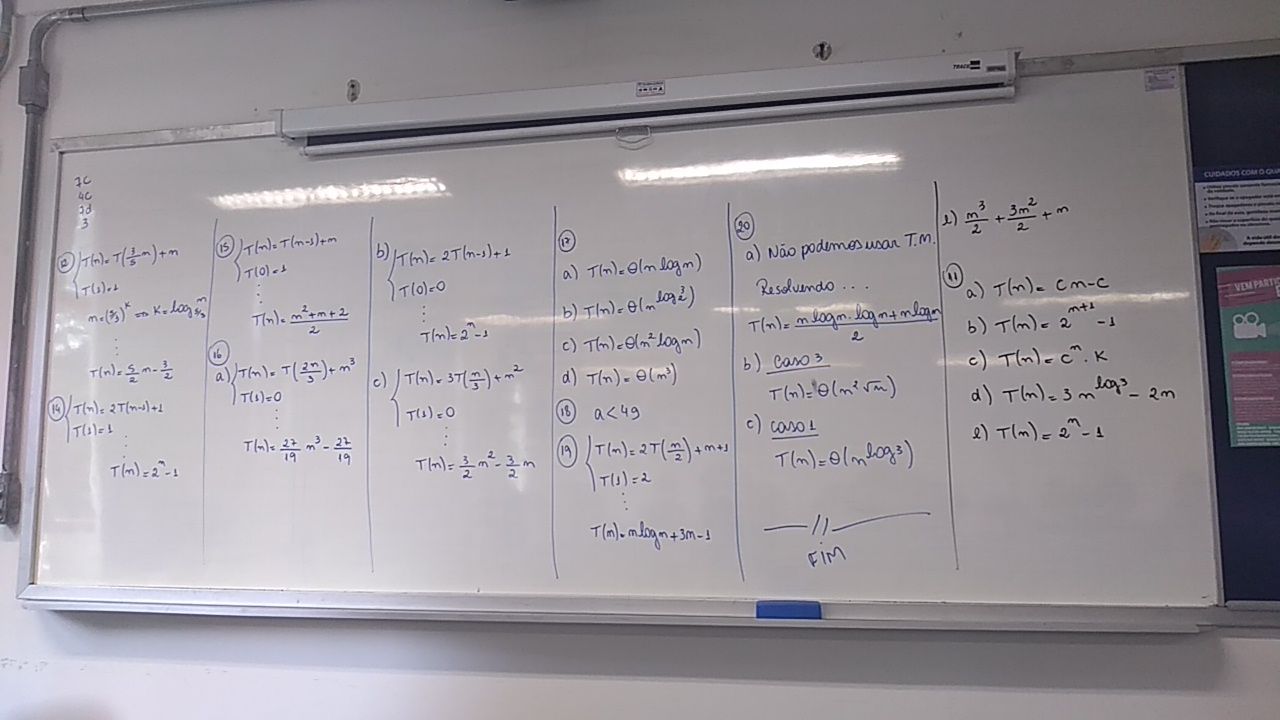 7c
4c
2d
3
T(n) = T(3/5 n) + n
T(1) = 1
n = (5/3)^k ⇒ k = log_{5/3} n
⋮
T(n) = 5/2 n - 3/2
14
T(n) = 2T(n-1) + 1
T(1) = 1
⋮
T(n) = 2^n - 1
15
T(n) = T(n-1) + n
T(0) = 1
⋮
T(n) = (n^2 + n + 2)/2
16
a) T(n) = T(2n/3) + n^3
T(1) = 0
⋮
T(n) = 27/19 n^3 - 27/19
b) T(n) = 2T(n-1) + 1
T(0) = 0
⋮
T(n) = 2^n - 1
c) T(n) = 3T(n/3) + n^2
T(1) = 0
⋮
T(n) = 3/2 n^2 - 3/2 n
17
a) T(n) = θ(n log n)
b) T(n) = θ(n^{log_2 3})
c) T(n) = θ(n^2 log n)
d) T(n) = θ(n^3)
18 a < 49
19
T(n) = 2T(n/2) + n + 1
T(1) = 2
⋮
T(n) = n log n + 3n - 1
20
a) Não podemos usar T.M.
Resolvendo ...
T(n) = (n log n · log n + n log n)/2
b) caso 3
T(n) = θ(n^2 √n)
c) caso 1
T(n) = θ(n^{log 3})
FIM
l) n^3/2 + 3n^2/2 + n
11
a) T(n) = cn - c
b) T(n) = 2^{n+1} - 1
c) T(n) = c^n · k
d) T(n) = 3n^{log 3} - 2n
e) T(n) = 2^n - 1
TRACE
CUIDADOS COM O QU
VEM PARTIC